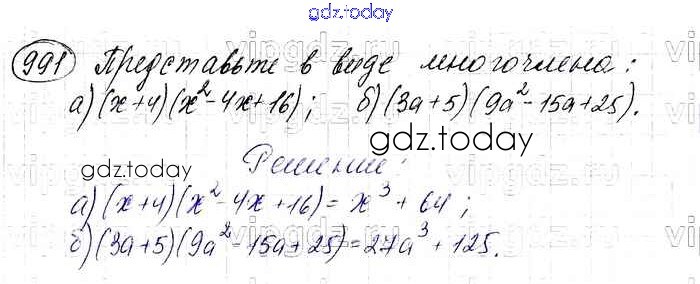 gdz.today
991 Представьте в виде многочлена:
а) (x+4)(x²-4x+16); б) (3a+5)(9a²-15a+25).
gdz.today
gdz.today
Решение:
а) (x+4)(x²-4x+16) = x³ + 64;
б) (3a+5)(9a²-15a+25) = 27a³ + 125.